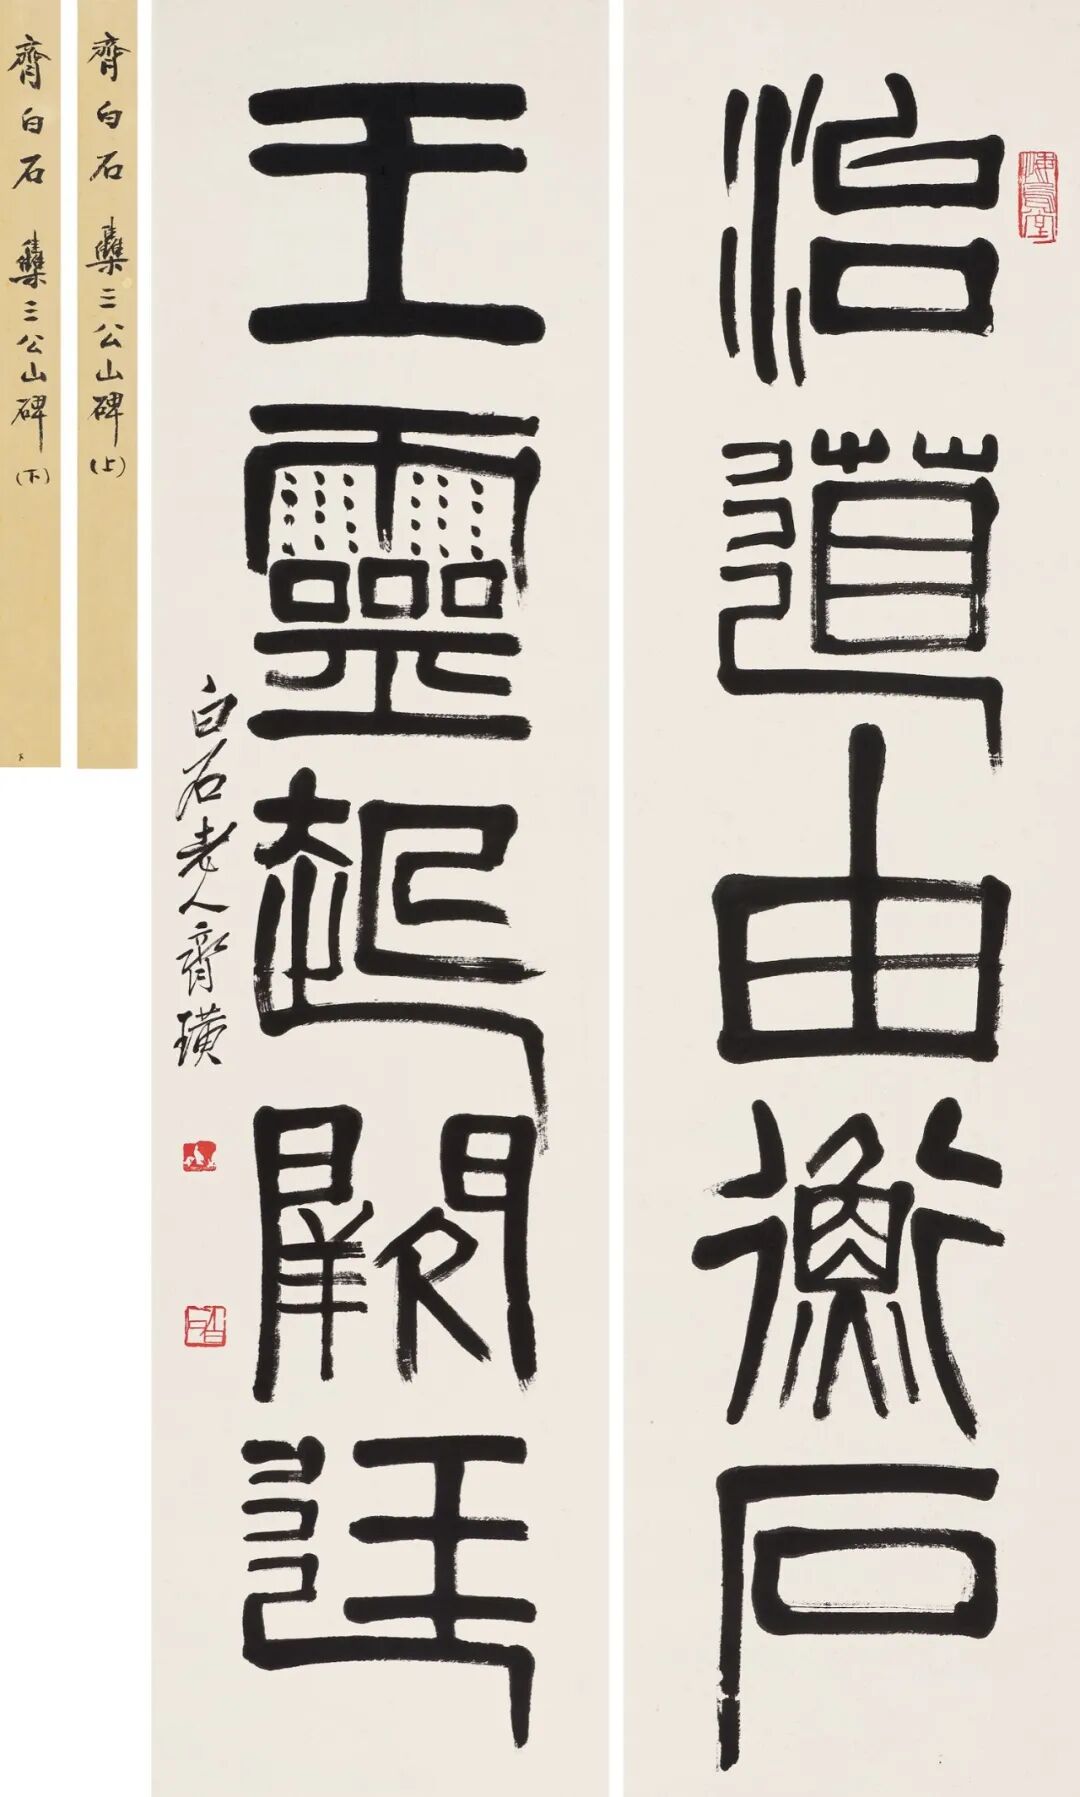 治道由衡石
王靈起闕廷
白石老人齊璜
悔烏堂
齊白石 雧三公山碑(上)
齊白石 雧三公山碑(下)